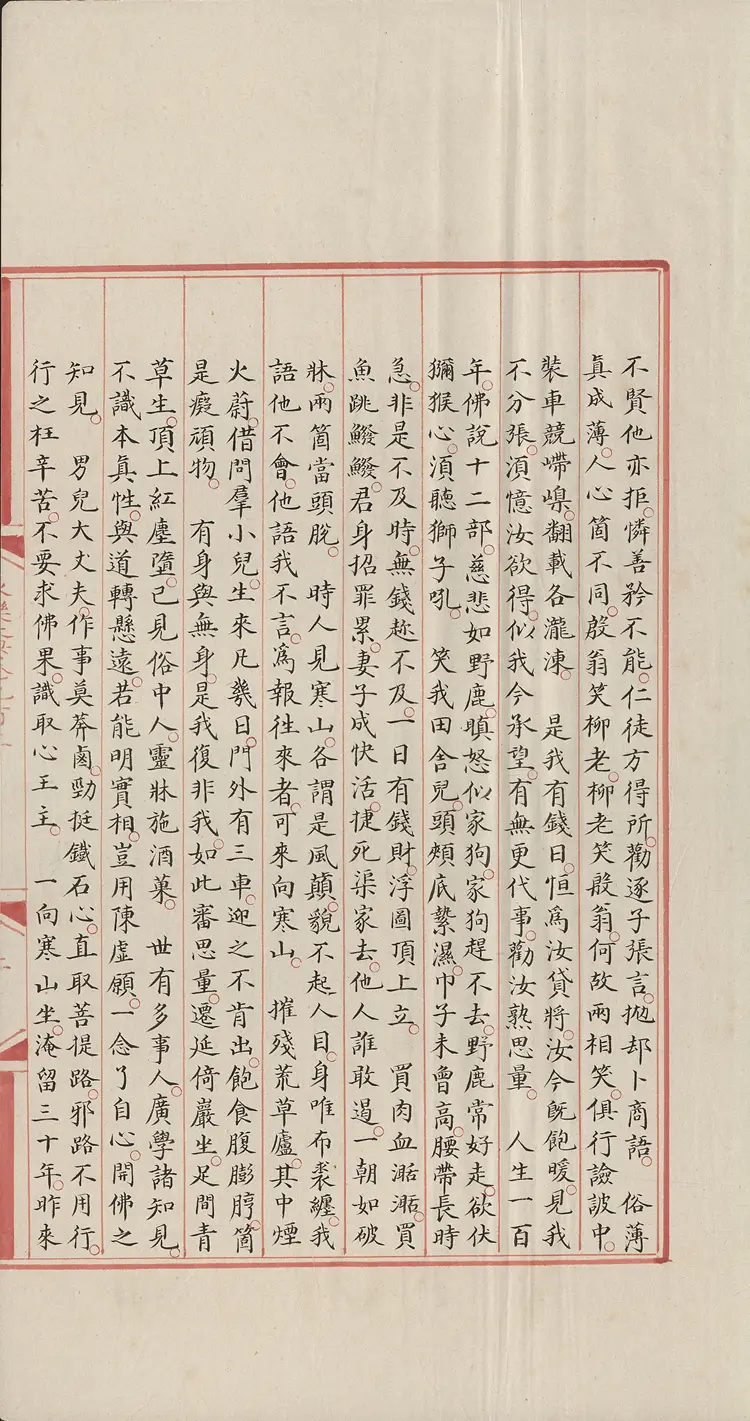 不賢他亦拒。憐善矜不能。仁徒方得所。勸逐子張言。拋却卜商語。　俗薄
真成薄。人心箇不同。殷翁笑柳老。柳老笑殷翁。何故兩相笑。俱行譣詖中。
裝車競嵽嵲。翻載各瀧涷。　是我有錢日。恒為汝貸將。汝今既飽暖。見我
不分張。湏憶汝欲得。似我今承望。有無更代事。勸汝熟思量。　人生一百
年。佛說十二部。慈悲如野鹿。瞋怒似家狗。家狗趕不去。野鹿常好走。欲伏
獼猴心。湏聽獅子吼。　笑我田舍兒。頭頰底縶濕。巾子未曾高。腰帶長時
急。非是不及時。無錢趂不及。一日有錢財。浮圖頂上立。　買肉血𣽂𣽂。買
魚跳鱍鱍。君身招罪累。妻子成快活。㨗死渠家去。他人誰敢遏。一朝如破
牀。兩箇當頭脫。　時人見寒山。各謂是風顛。貌不起人目。身唯布裘纏。我
語他不會。他語我不言。為報往來者。可來向寒山。　摧殘荒草廬。其中煙
火蔚。借問羣小兒。生來凡幾日。門外有三車。迎之不肯出。飽食腹膨脝。箇
是癡頑物。　有身與無身。是我復非我。如此審思量。遷延倚巖坐。足間青
草生。頂上紅塵墮。已見俗中人。靈牀施酒菓。　世有多事人。廣學諸知見。
不識本真性。與道轉懸遠。若能明實相。豈用陳虛願。一念了自心。開佛之
知見。　男兒大丈夫。作事莫莽鹵。勁挺鐵石心。直取菩提路。邪路不用行。
行之枉辛苦。不要求佛果。識取心王主。　一向寒山坐。淹留三十年。昨來